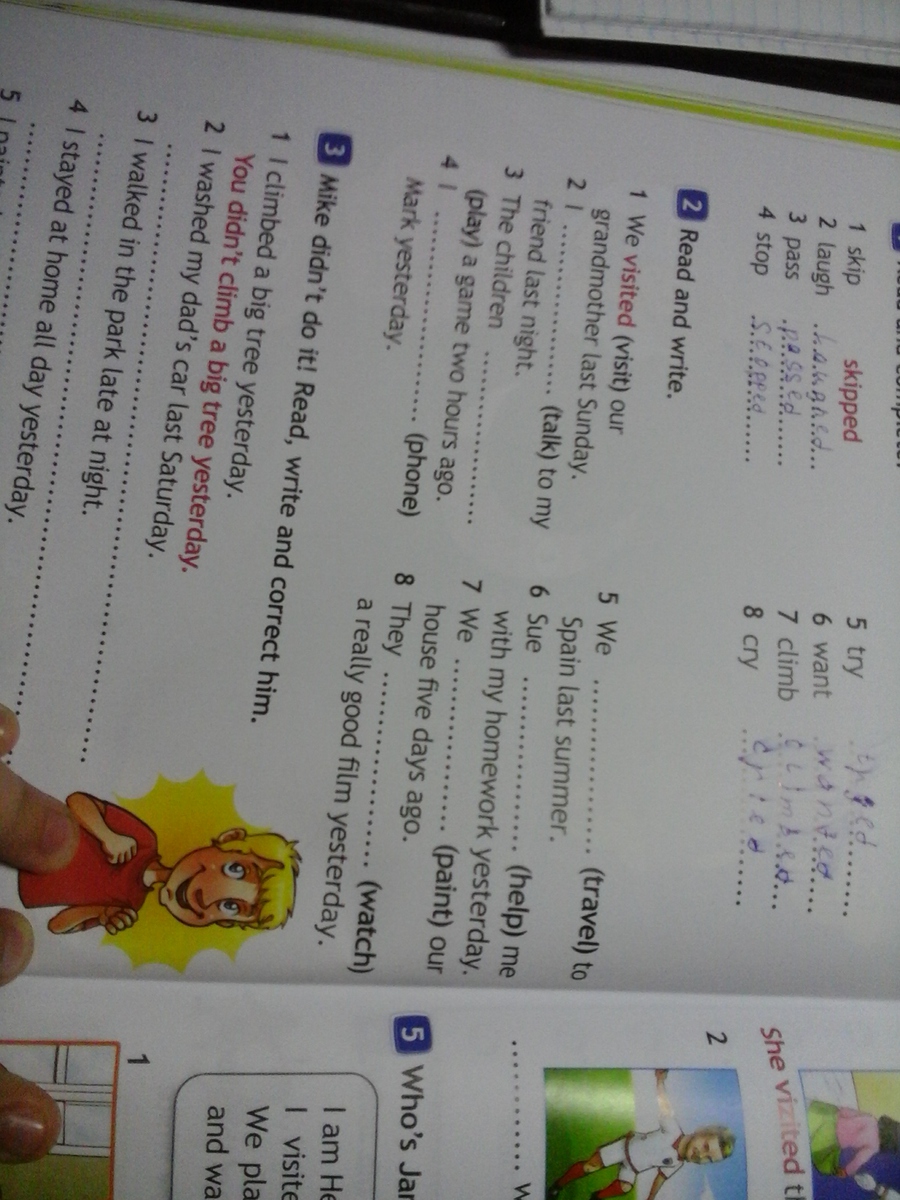 1 skip skipped
2 laugh laughed
3 pass passed
4 stop stopped
5 try
6 want wanted
7 climb climbed
8 cry
2 Read and write.
1 We visited (visit) our
grandmother last Sunday.
2 I .................... (talk) to my
friend last night.
3 The children ....................
(play) a game two hours ago.
4 I .................... (phone)
Mark yesterday.
5 We .................... (travel) to
Spain last summer.
6 Sue .................... (help) me
with my homework yesterday.
7 We .................... (paint) our
house five days ago.
8 They .................... (watch)
a really good film yesterday.
3 Mike didn't do it! Read, write and correct him.
1 I climbed a big tree yesterday.
You didn't climb a big tree yesterday.
2 I washed my dad's car last Saturday.
3 I walked in the park late at night.
4 I stayed at home all day yesterday.
5 I
She vizited
2
5 Who's
I am
I
We
and
1